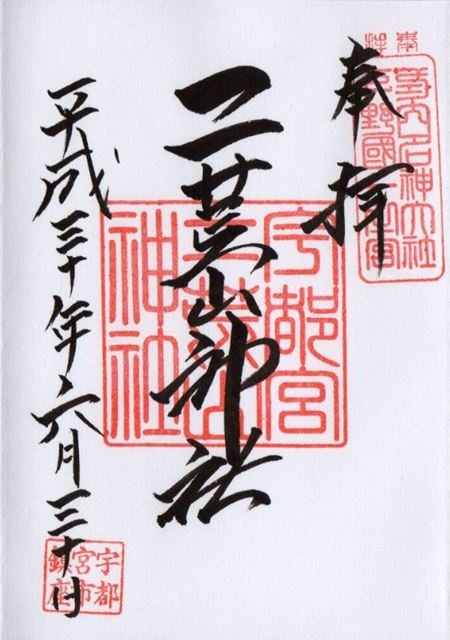 奉拝
式内名神大社
下野國一之宮
奉拝
二荒山神社
宇都宮
二荒山
神社
平成三十年六月三十日
宇都
宮市
鎮座